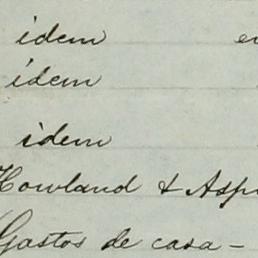 idem
idem
idem
Howland & Asp
Gastos de casa -